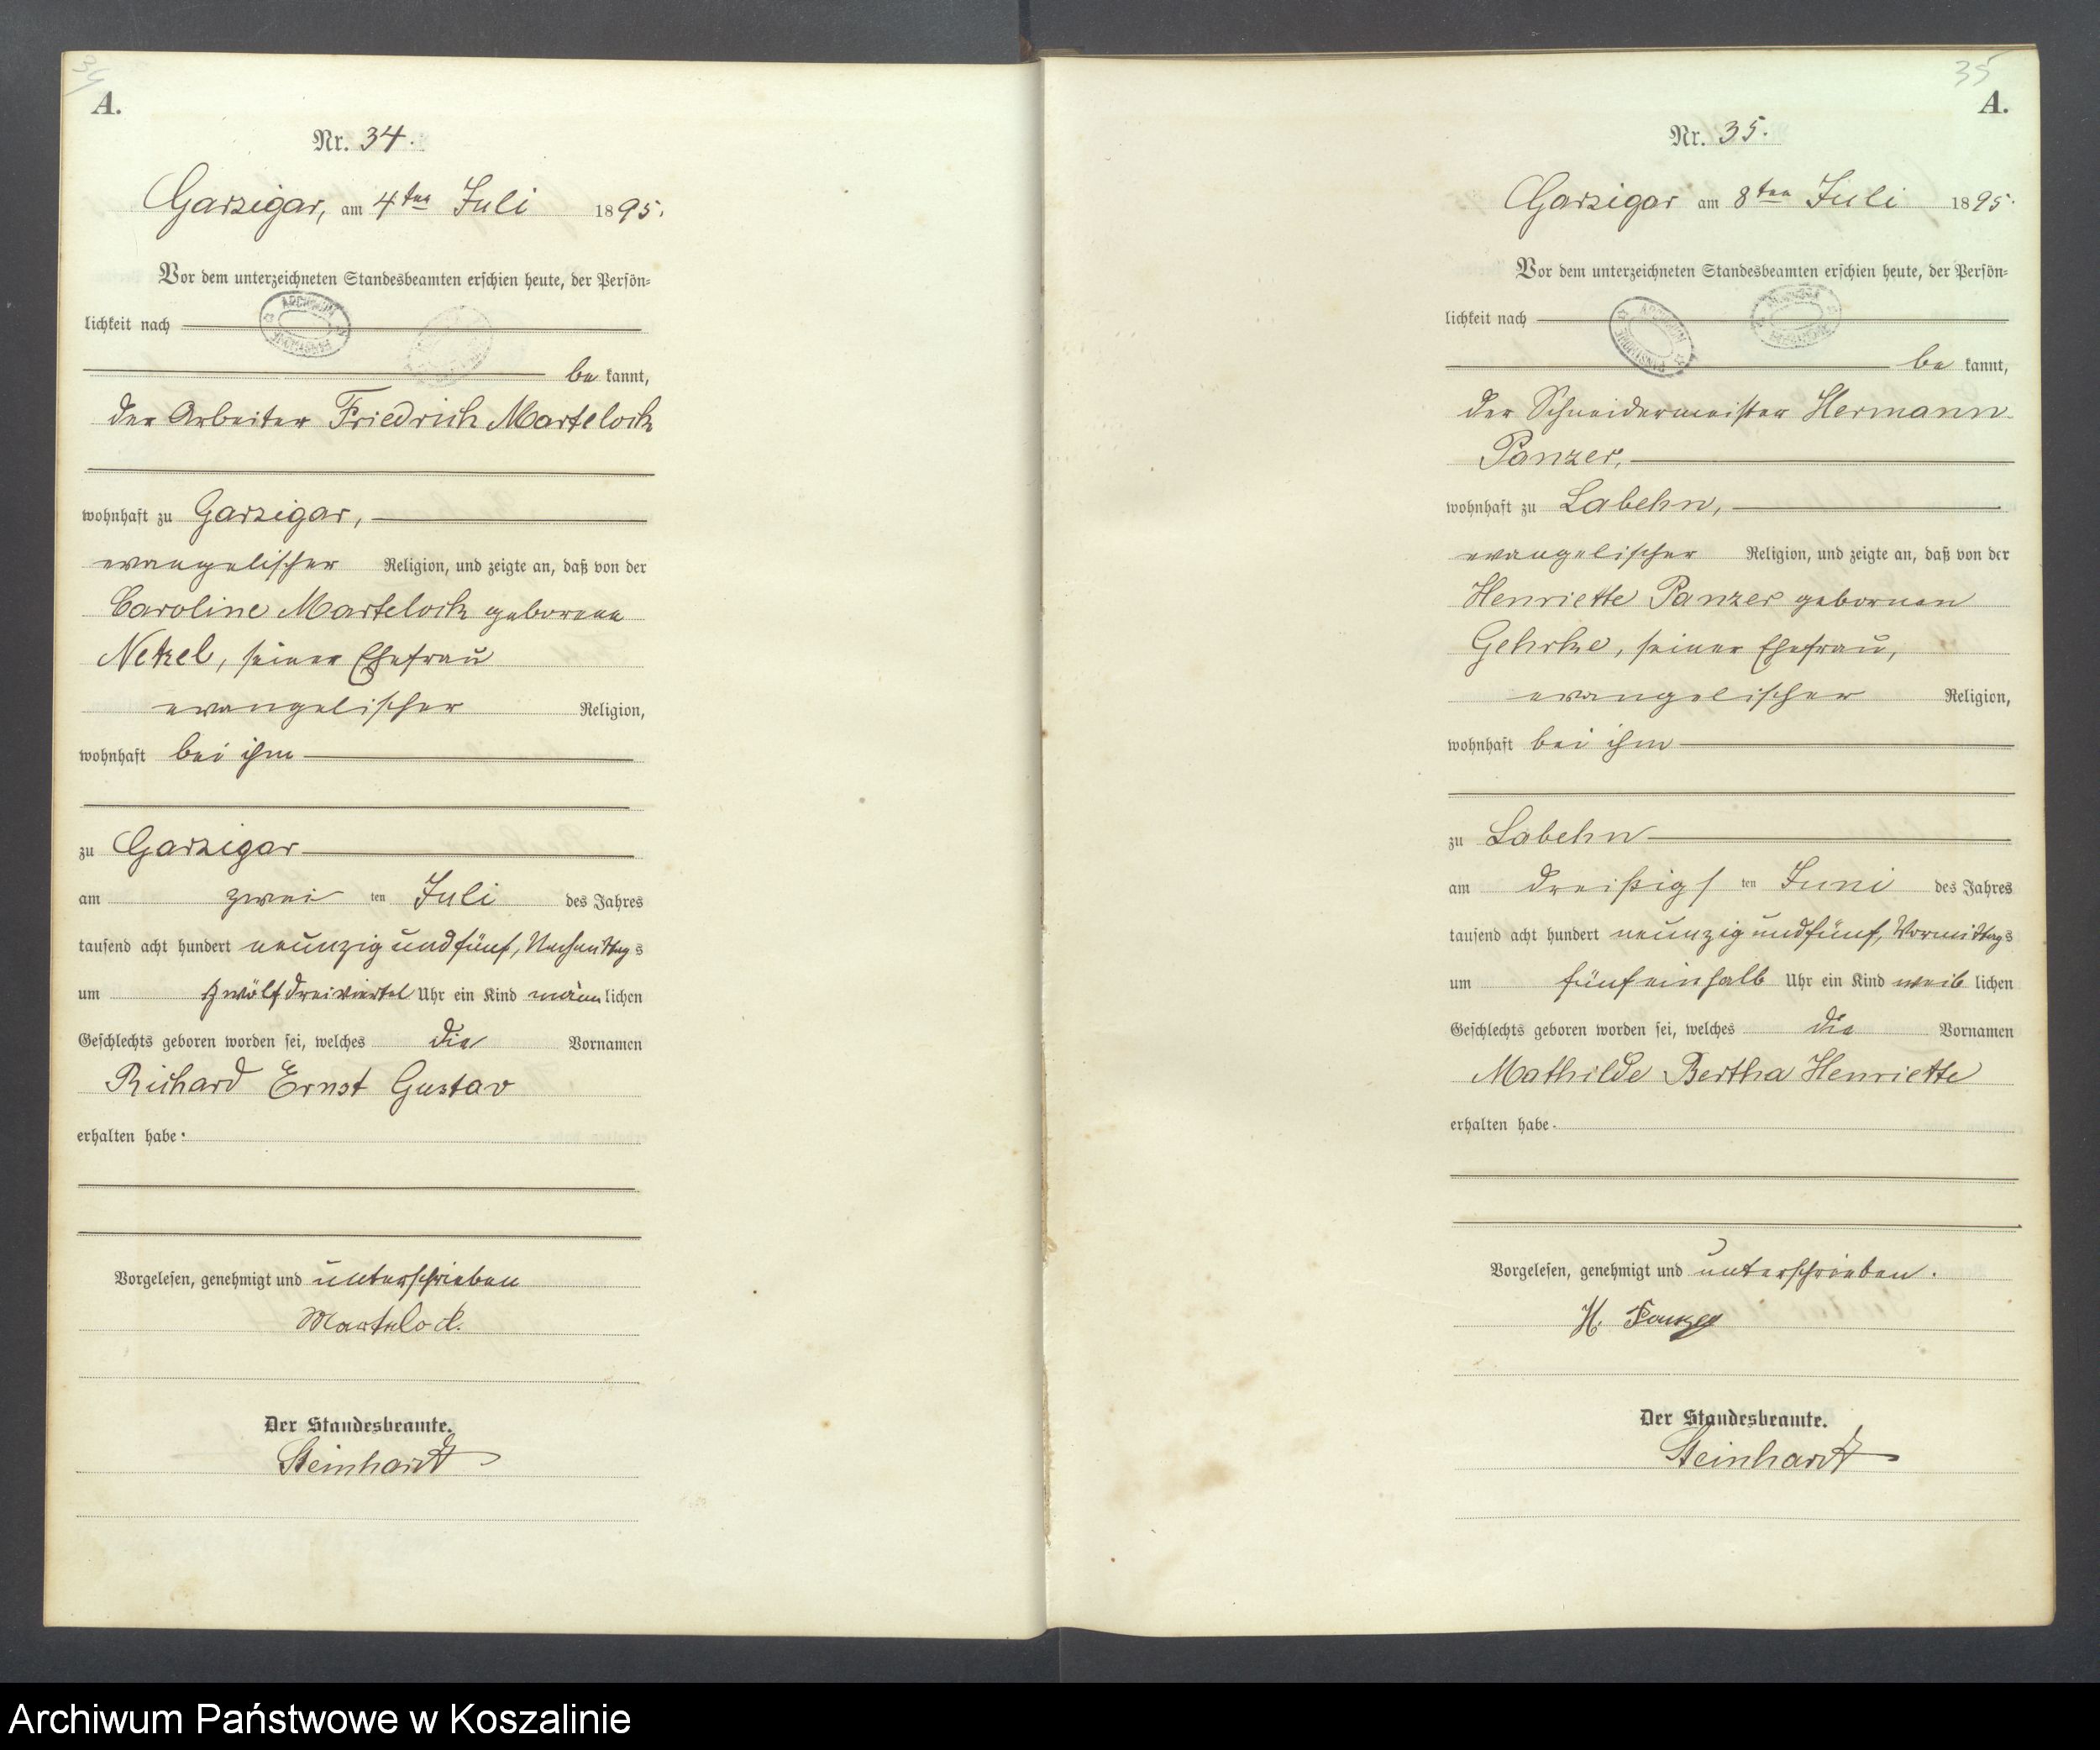 34
A.
Nr. 34.
Garzigar, am 4ten Juli 1895.
Vor dem unterzeichneten Standesbeamten erschien heute, der Persön-
lichkeit nach
be kannt,
der Arbeiter Friedrich Martelock
wohnhaft zu Garzigar,
evangelischer Religion, und zeigte an, daß von der
Caroline Martelock geborene
Netzel, seiner Ehefrau
evangelischer Religion,
wohnhaft bei ihm
zu Garzigar
am zwei ten Juli des Jahres
tausend acht hundert neunzig und fünf, Nachmittags
um zwölf dreiviertel Uhr ein Kind männlichen
Geschlechts geboren worden sei, welches die Vornamen
Richard Ernst Gustav
erhalten habe.
Vorgelesen, genehmigt und unterschrieben
Martelock.
Der Standesbeamte.
Steinhardt
35
A.
Nr. 35.
Garzigar am 8ten Juli 1895.
Vor dem unterzeichneten Standesbeamten erschien heute, der Persön-
lichkeit nach
be kannt,
der Schneidermeister Hermann
Panzer,
wohnhaft zu Labehn,
evangelischer Religion, und zeigte an, daß von der
Henriette Panzer gebornen
Gehrke, seiner Ehefrau,
evangelischer Religion,
wohnhaft bei ihm
zu Labehn
am dreißigs ten Juni des Jahres
tausend acht hundert neunzig und fünf, Vormittags
um fünf ein halb Uhr ein Kind weiblichen
Geschlechts geboren worden sei, welches die Vornamen
Mathilde Bertha Henriette
erhalten habe.
Vorgelesen, genehmigt und unterschrieben.
H. Panzer
Der Standesbeamte.
Steinhardt
Archiwum Państwowe w Koszalinie